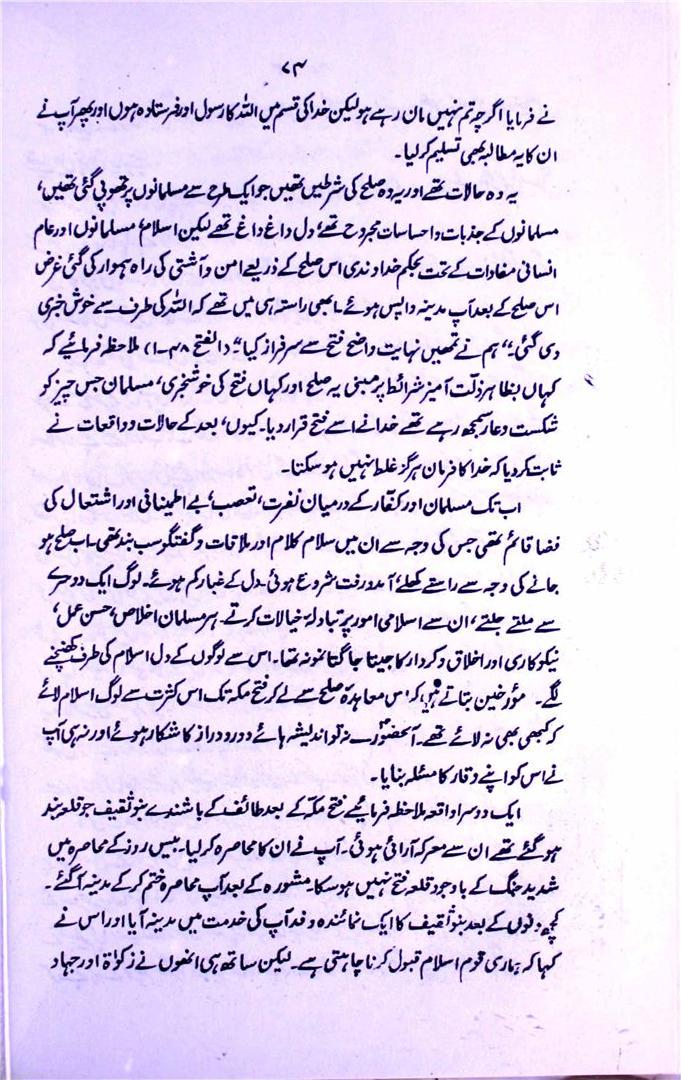 ۷۴
نے فرمایا اگرچہ تم نہیں مان رہے ہو لیکن خدا کی قسم میں اللہ کا رسول اور فرستادہ ہوں اور پھر آپ نے
ان کا یہ مطالبہ بھی تسلیم کر لیا۔
یہ وہ حالات تھے اور یہ وہ صلح کی شرطیں تھیں جو ایک طرح سے مسلمانوں پر تھوپی گئی تھیں،
مسلمانوں کے جذبات و احساسات مجروح تھے، دل داغ داغ تھے لیکن اسلام، مسلمانوں اور عام
انسانی مفادات کے تحت بحکم خداوندی اس صلح کے ذریعے امن و آشتی کی راہ ہموار کی گئی غرض
اس صلح کے بعد آپ مدینہ واپس ہوئے۔ ابھی راستہ ہی میں تھے کہ اللہ کی طرف سے خوش خبری
دی گئی۔ "ہم نے تمھیں نہایت واضح فتح سے سرفراز کیا" (الفتح ۴۸۔۱) ملاحظہ فرمائیے کہ
کہاں بظاہر ذلت آمیز شرائط پر مبنی یہ صلح اور کہاں فتح کی خوشخبری، مسلمان جس چیز کو
شکست و عار سمجھ رہے تھے خدا نے اسے فتح قرار دیا۔ کیوں، بعد کے حالات و واقعات نے
ثابت کر دیا کہ خدا کا فرمان ہرگز غلط نہیں ہو سکتا۔
اب تک مسلمان اور کفار کے درمیان نفرت، تعصب، بے اطمینانی اور اشتعال کی
فضا قائم تھی جس کی وجہ سے ان میں سلام کلام اور ملاقات و گفتگو سب بند تھی۔ اب صلح ہو
جانے کی وجہ سے راستے کھلے، آمد و رفت شروع ہوئی، دل کے غبار کم ہوئے۔ لوگ ایک دوسرے
سے ملتے جلتے، ان سے اسلامی امور پر تبادلۂ خیالات کرتے۔ ہر مسلمان اخلاص، حسن عمل،
نیکوکاری اور اخلاق و کردار کا جیتا جاگتا نمونہ تھا۔ اس سے لوگوں کے دل اسلام کی طرف کھنچنے
لگے۔ مؤرخین بتاتے ہیں کہ اس معاہدۂ صلح سے لے کر فتح مکہ تک اس کثرت سے لوگ اسلام لائے
کہ کبھی بھی نہ لائے تھے۔ آنحضورؐ نہ تو اندیشہ ہائے دور دراز کا شکار ہوئے اور نہ ہی آپ
نے اس کو اپنے وقار کا مسئلہ بنایا۔
ایک دوسرا واقعہ ملاحظہ فرمائیے فتح مکہ کے بعد طائف کے باشندے بنو ثقیف جو قلعہ بند
ہو گئے تھے ان سے معرکہ آرائی ہوئی۔ آپ نے ان کا محاصرہ کر لیا۔ بیس روز کے محاصرہ میں
شدید جنگ کے باوجود قلعہ فتح نہیں ہو سکا۔ مشورہ کے بعد آپ محاصرہ ختم کر کے مدینہ آ گئے۔
کچھ دنوں کے بعد بنو ثقیف کا ایک نمائندہ وفد آپ کی خدمت میں مدینہ آیا اور اس نے
کہا کہ ہماری قوم اسلام قبول کرنا چاہتی ہے۔ لیکن ساتھ ہی انھوں نے زکوٰۃ اور جہاد